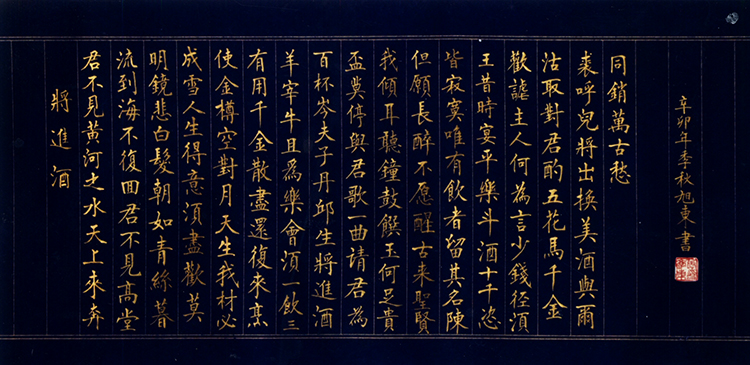 將進酒
君不見黃河之水天上來奔
流到海不復回君不見高堂
明鏡悲白髮朝如青絲暮
成雪人生得意須盡歡莫
使金樽空對月天生我材必
有用千金散盡還復來烹
羊宰牛且為樂會須一飲三
百杯岑夫子丹邱生將進酒
盃莫停與君歌一曲請君為
我傾耳聽鐘鼓饌玉何足貴
但願長醉不愿醒古来聖賢
皆寂寞唯有飲者留其名陳
王昔時宴平樂斗酒十千恣
歡謔主人何為言少錢径須
沽取對君酌五花馬千金
裘呼兒將出換美酒與爾
同銷萬古愁
辛卯年季秋旭東書